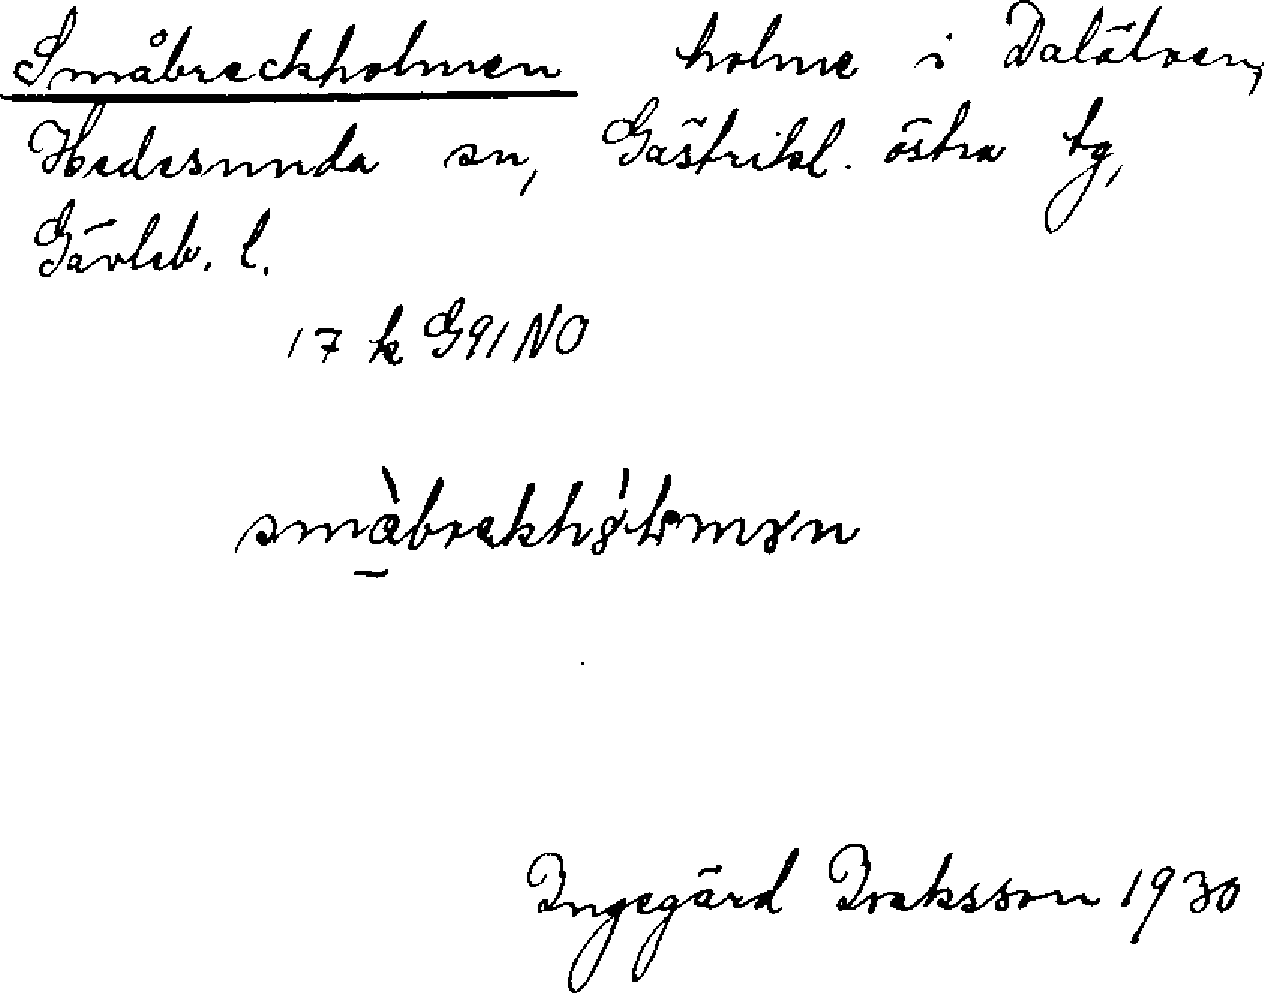 Småbreckholmen holme i Dalälven,
Hedesunda sn, Gästrikl. östra tg,
Gävleb. l.
17 k G91NO
Ingegärd Isaksson 1930